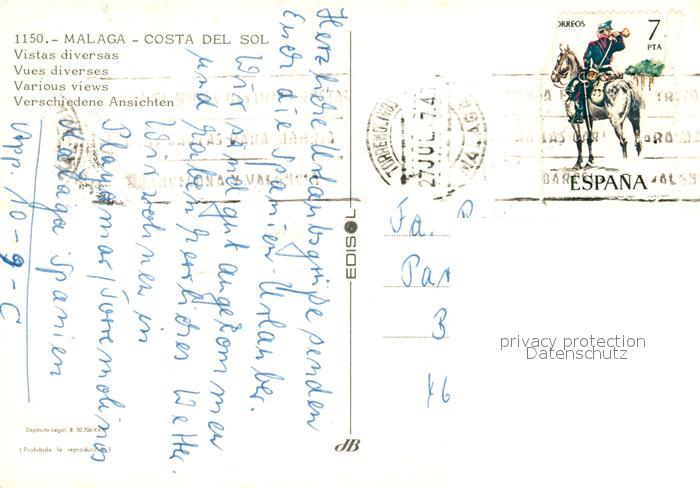 1150.- MALAGA - COSTA DEL SOL
Vistas diversas
Vues diverses
Various views
Verschiedene Ansichten
Herzliche Urlaubsgrüße senden
Euch die Spanien-Urlauber.
Wir sind gut angekommen
und haben herrliches Wetter.
Wir wohnen in
Playamar/Torremolinos
Malaga Spanien
App. 10-9-C
Depósito Legal, B. 50.706-XV
(Prohibida la reproducción)
EDISOL
JB
CORREOS
7
PTA
ESPAÑA
TORREMOLINOS
27 JUL. 74
MALAGA
Fa.
Par
B
46
privacy protection
Datenschutz